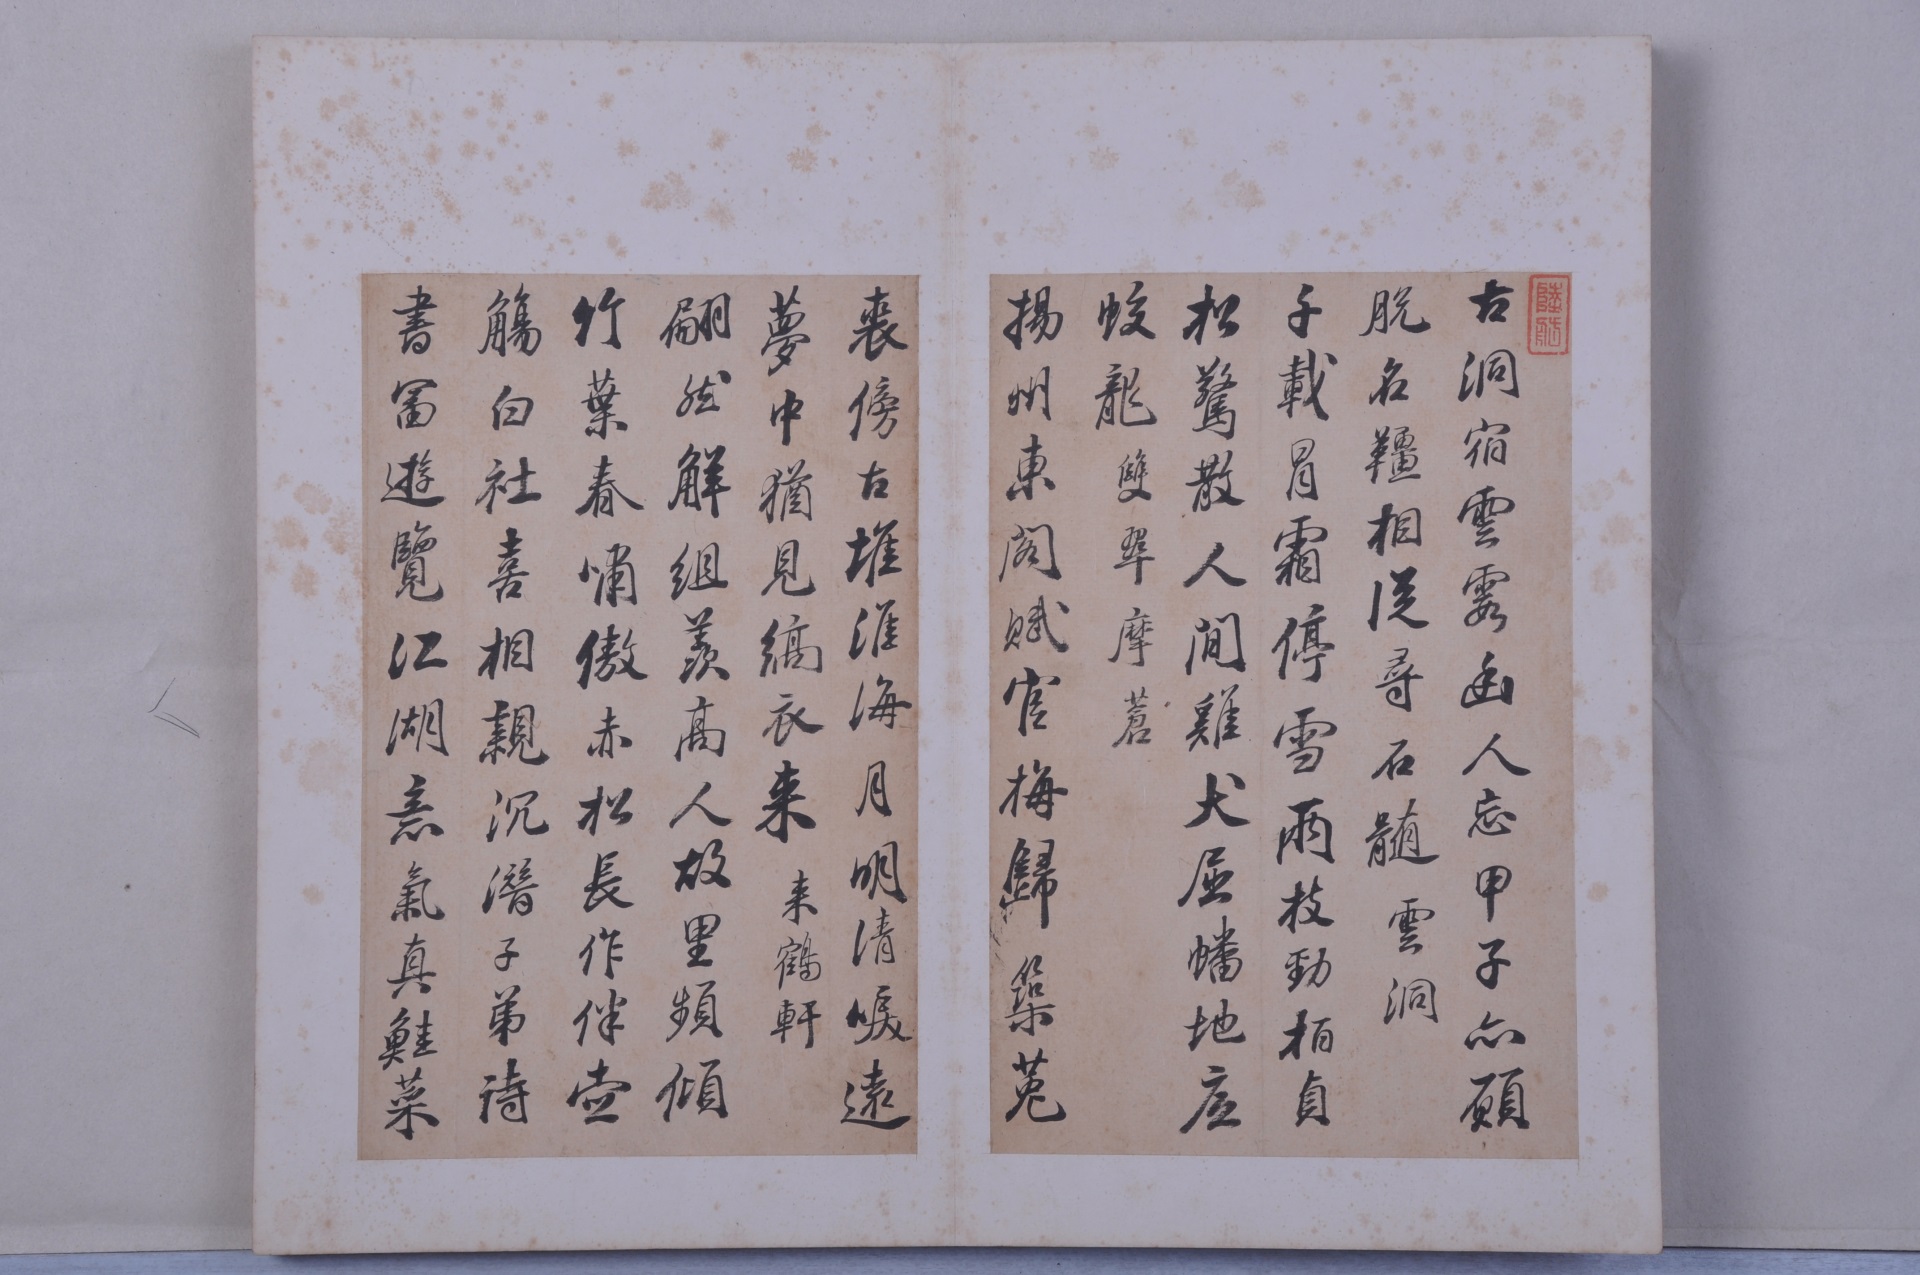 古洞宿雲霧幽人忘甲子亦願
脫名韁相從尋石髓 雲洞
千載冒霜停雪雨枝勁柏貞
松驚散人間雞犬屈幡地底
蛟龍 雙翠摩蒼
揚州東閣賦官梅歸築菟
裘傍古堆淮海月明清唳遠
夢中猶見縞衣来 来鶴軒
翩然解組羨高人故里頻傾
竹葉春嘯傲赤松長作伴壺
觴白社喜相親沉潛子弟詩
書富遊覽江湖意氣真鮭菜